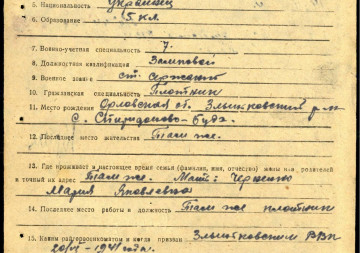 5. Национальность украинец
6. Образование 5 кл.
7. Военно-учетная специальность 7.
8. Должностная квалификация Замковой
9. Военное звание ст. сержант
10. Гражданская специальность Плотник
11. Место рождения Орловская об. Злынковский р-н
с. Спиридонова-Буда.
12. Последнее место жительства Там же.
13. Где проживает в настоящее время семья (фамилия, имя, отчество) жены или родителей
и точный их адрес Там же. Мать: Черненко
Мария Яковлевна
14. Последнее место работы и должность Там же плотник
15. Каким райгорвоенкоматом и когда призван Злынковским РВК
20/VI - 1941 года.